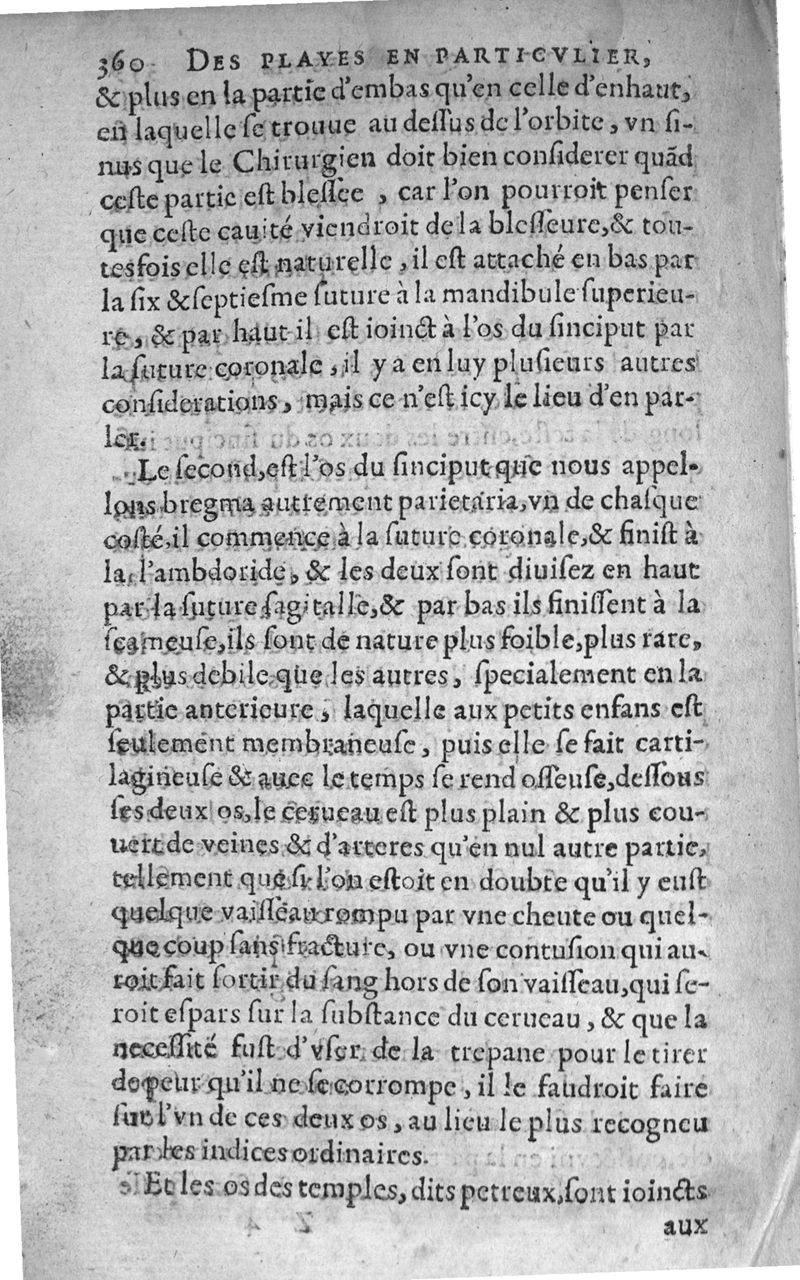 360 DES PLAYES EN PARTICVLIER,
& plus en la partie d'embas qu'en celle d'enhaut,
en laquelle se trouue au dessus de l'orbite, vn si-
nus que le Chirurgien doit bien considerer quãd
ceste partie est blessée, car l'on pourroit penser
que ceste cauité viendroit de la blesseure, & tou-
tesfois elle est naturelle, il est attaché en bas par
la six & septiesme suture à la mandibule superieu-
re, & par haut il est ioinct à l'os du sinciput par
la suture coronale, il y a en luy plusieurs autres
considerations, mais ce n'est icy le lieu d'en par-
ler.
Le second, est l'os du sinciput que nous appel-
lons bregma autrement parietaria, vn de chasque
costé, il commence à la suture coronale, & finist à
la l'ambdoride, & les deux sont diuisez en haut
par la suture sagitalle, & par bas ils finissent à la
scameuse, ils sont de nature plus foible, plus rare,
& plus debile que les autres, specialement en la
partie anterieure, laquelle aux petits enfans est
seulement membraneuse, puis elle se fait carti-
lagineuse & auec le temps se rend osseuse, dessous
ses deux os, le cerueau est plus plain & plus cou-
uert de veines & d'arteres qu'en nul autre partie,
tellement que si l'on estoit en doubte qu'il y eust
quelque vaisseau rompu par vne cheute ou quel-
que coup sans fracture, ou vne contusion qui au-
roit fait sortir du sang hors de son vaisseau, qui se-
roit espars sur la substance du cerueau, & que la
necessité fust d'vser de la trepane pour le tirer
de peur qu'il ne se corrompe, il le faudroit faire
sur l'vn de ces deux os, au lieu le plus recogneu
par les indices ordinaires.
Et les os des temples, dits petreux, sont ioincts
aux